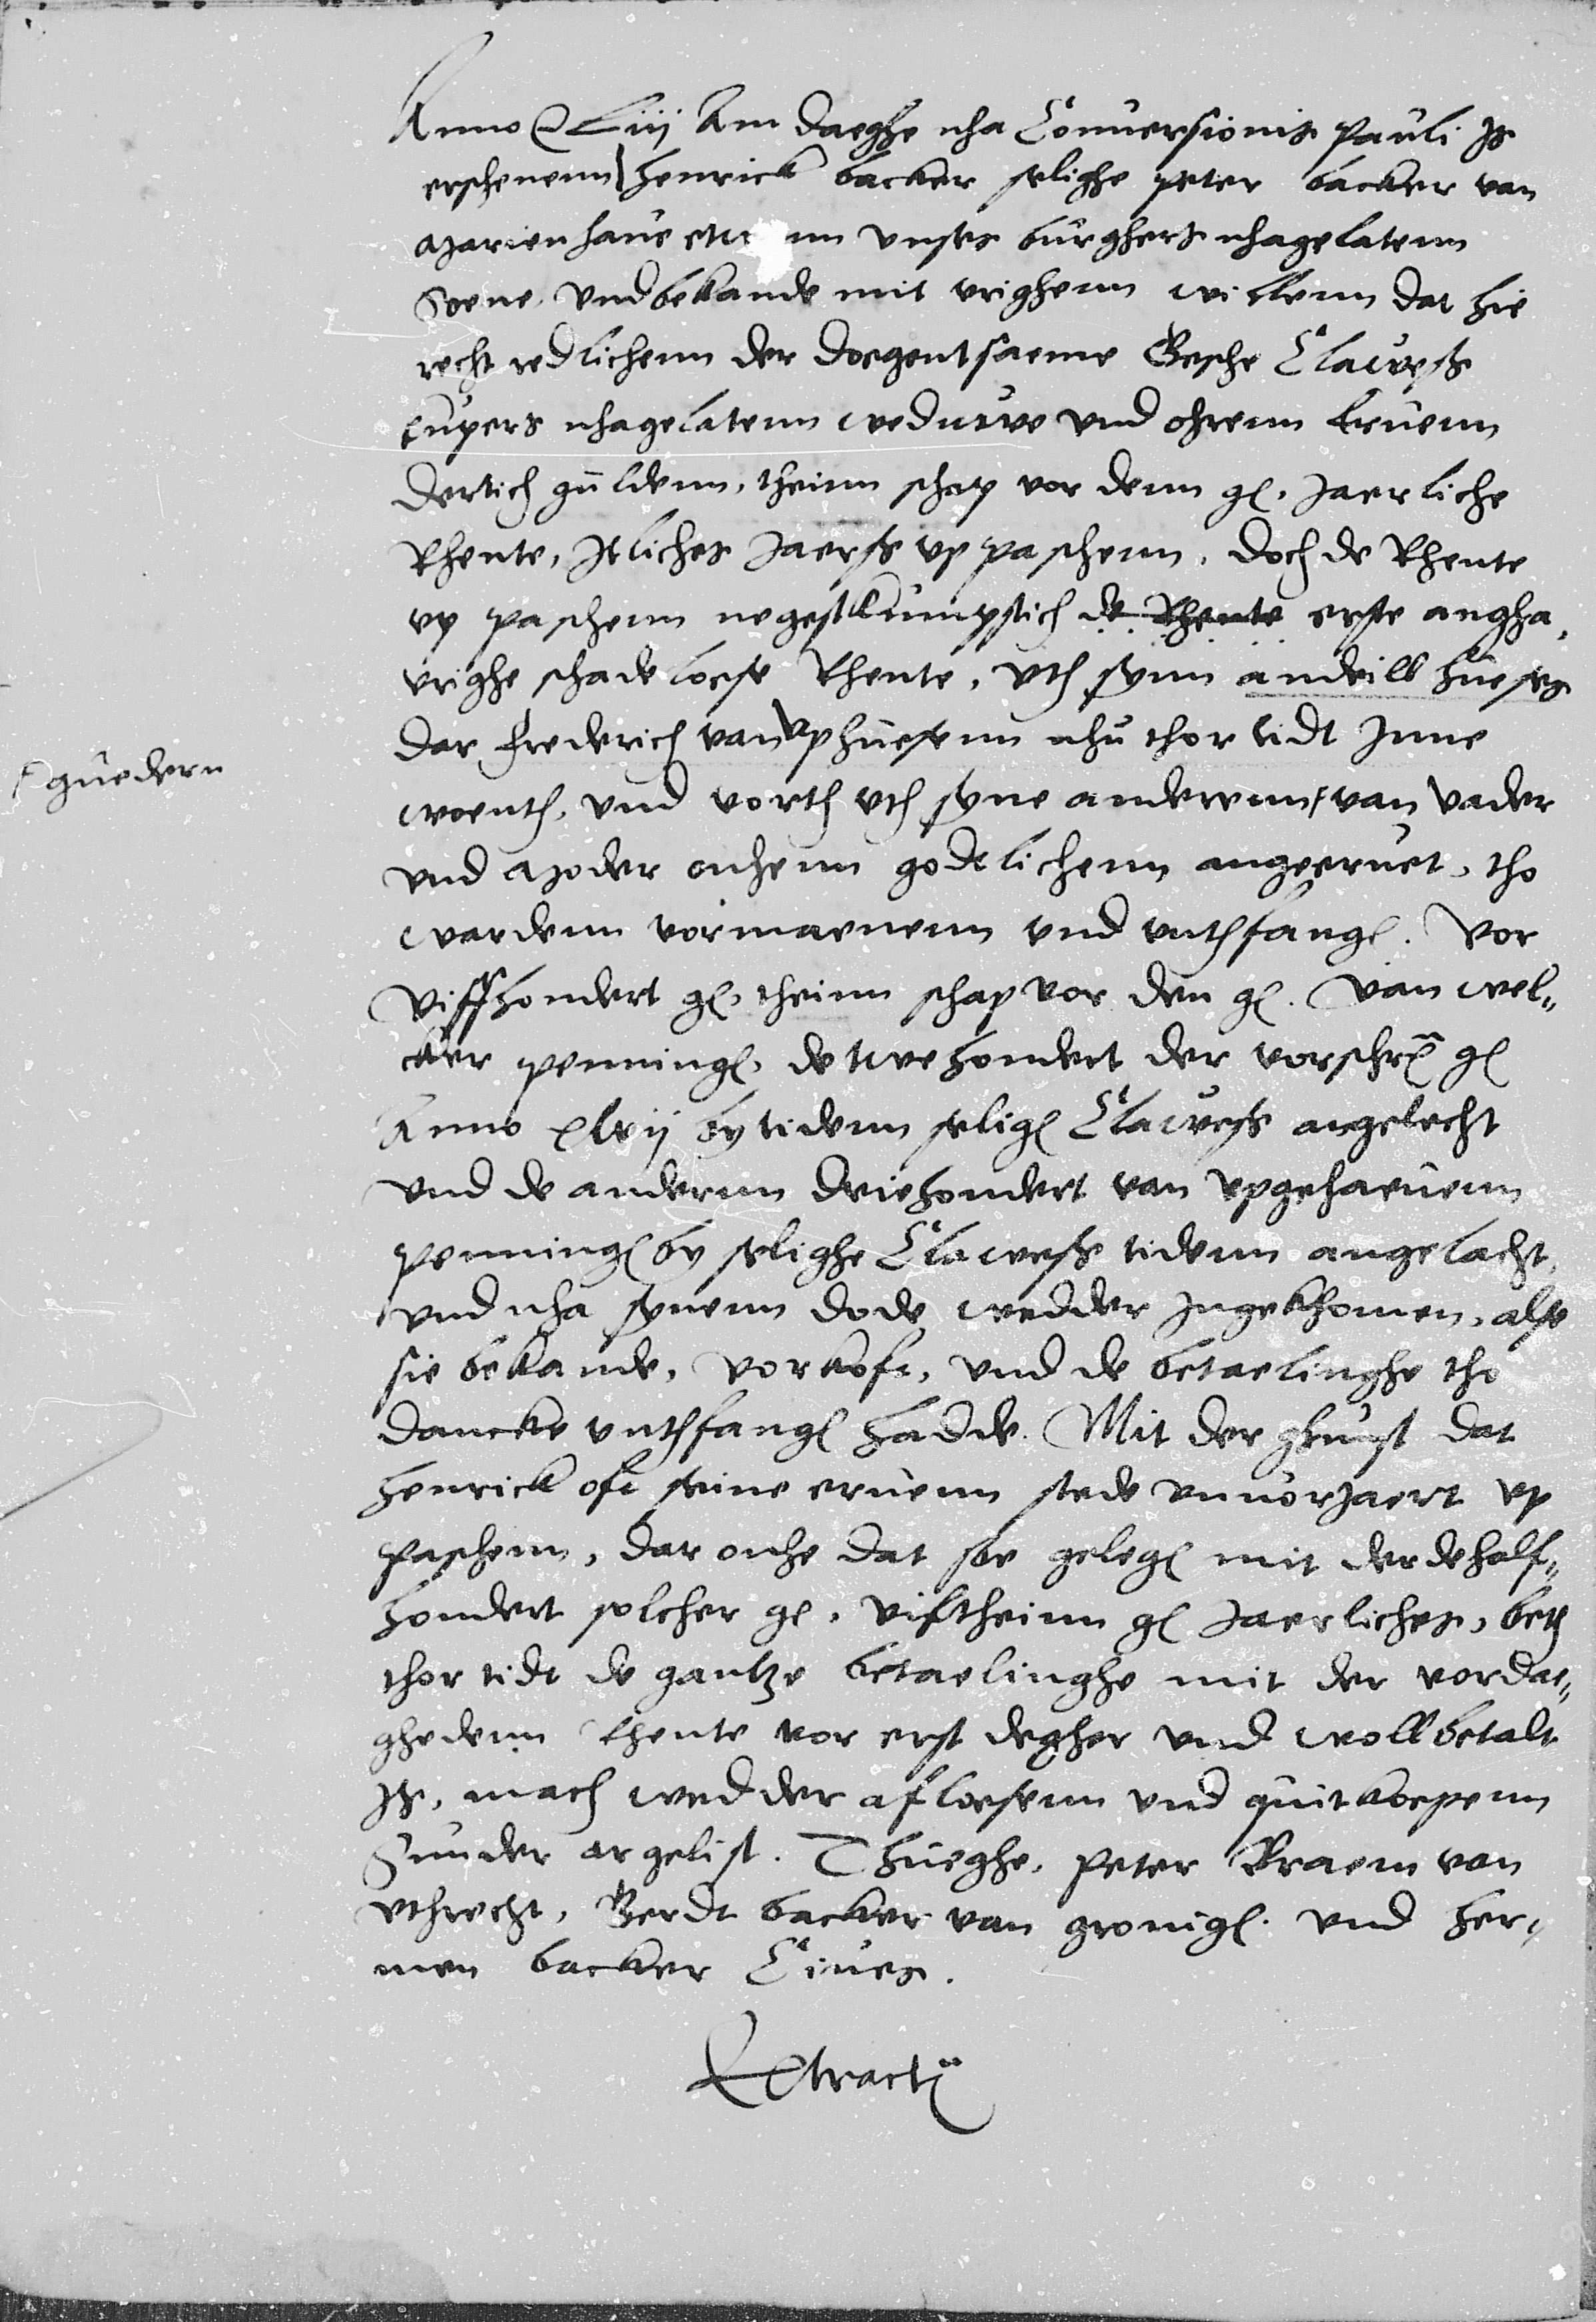 Anno Liij Am daeghe nha Conuersionis Pauli Js
erschenenn Henrick backer selighe Peter backer van
Marienhaue unses burghers nhagelatenn
soene, und bekande mit vrighenn willenn dat hie
recht redlichenn der doegentsaeme Gesche Clawess
Cupers nhagelatenn weduwe und ohrenn Eruenn
dertich guldenn, theinn schap vor denn gl. Jaerliche
Rhente, Jtliches Jaerss up paschenn, doch de Rhente
up paschenn negestkumpstich de Rhente erste angha,
vrighe schadeloese Rhente, uth synn andeill hueses
dar Frederich van Uphuesenn nhu thor tidt Jnne
woenth, und vorth uth syne anderenn van vader
guedern
und Moder onhenn godtlichenn angeeruet, tho
wardenn vormaenenn und unthfangl. vor
Viffhondert gl, theinn schap vor den gl. van wel„
cker penningl, de twehondert der vorschr gl
Anno xlvij by tidenn seligl Clawess angelecht
und de anderenn driehondert van upgehauenn
penningl by selighe Clawess tidenn angelacht,
und nha synenn dode wedder Jngekhomen, alse
sie bekande, vorkoft, und de betaelinghe tho
dancke unthfangl hadde. Mit der ghunst dat
Henrick oft seine eruenn stede unuorjaert up
paschenn, dar onhe dat soe gelegl mit derdehalf„
hondert solcher gl, vifftheinn gl Jaerliches, beth
thor tidt de gantze betaelinghe mit der vordae„
ghedenn Rhente vor erst degher und woll betalt
Js, mach wedder afloesenn und quit koepenn
Sunder argelist. Thueghe, Peter Praem van
Uthrecht, Berdt backer van gronigl. und Her„
men backer Ciues.
Extractu